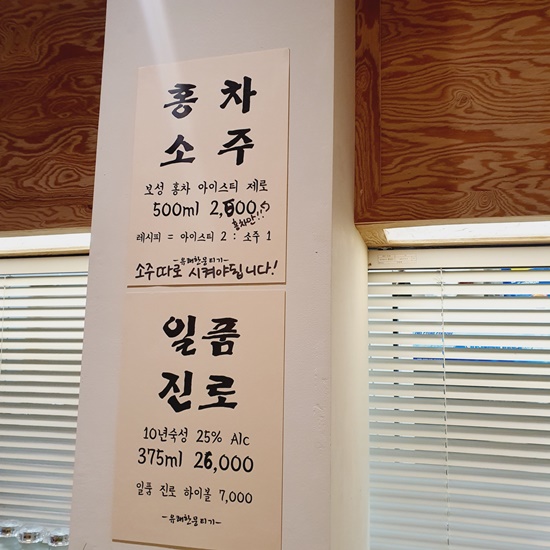 홍차
소주
보성 홍차 아이스티 제로
500ml 2,500
홍차만!!!
레시피 = 아이스티 2 : 소주 1
소주 따로 시켜야됩니다!
일품
진로
10년숙성 25% Alc
375ml 26,000
일품 진로 하이볼 7,000